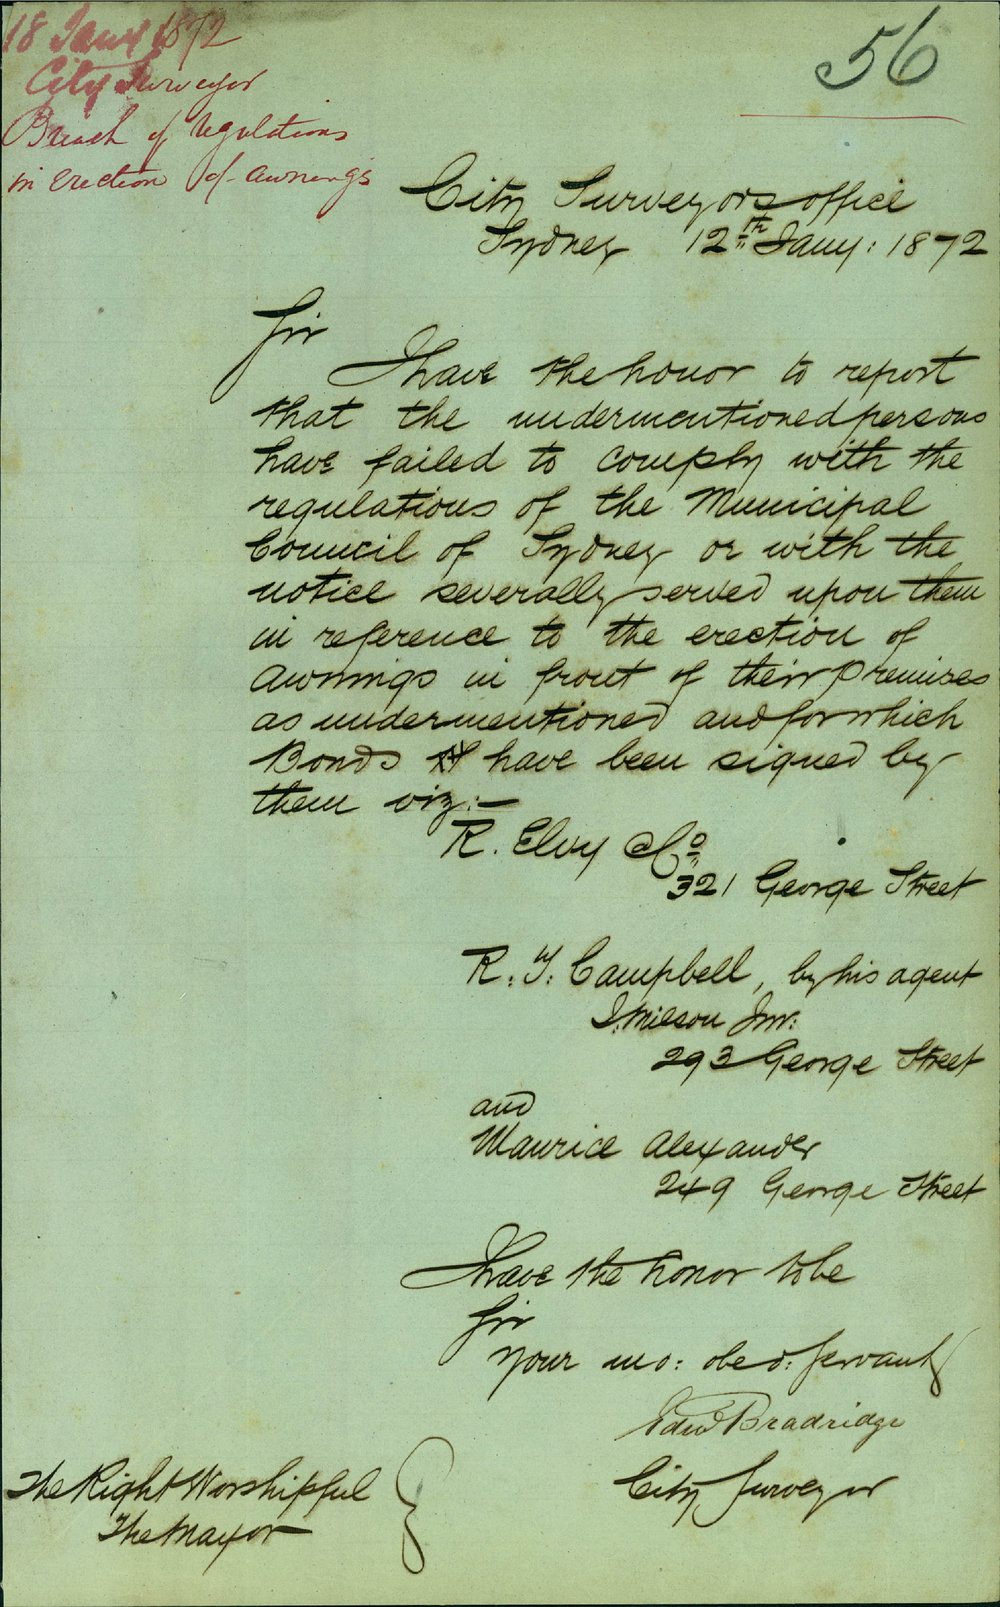 18 Jany 1872
City Surveyor
Breach of regulations
in erection of awnings
56
City Surveyors office
Sydney 12th Jany: 1872
Sir
I have the honor to report
that the undermentioned persons
have failed to comply with the
regulations of the Municipal
Council of Sydney or with the
notice severally served upon them
in reference to the erection of
Awnings in front of their premises
as undermentioned and for which
Bonds have been signed by
them viz:—
R. Elvy & Co
321 George Street
R. T. Campbell, by his agent
J. Milson Jnr:
293 George Street
and
Maurice Alexander
249 George Street
I have the honor to be
Sir
Your mo: obed: servant
Edwd Bradridge
City Surveyor
The Right Worshipful
The Mayor